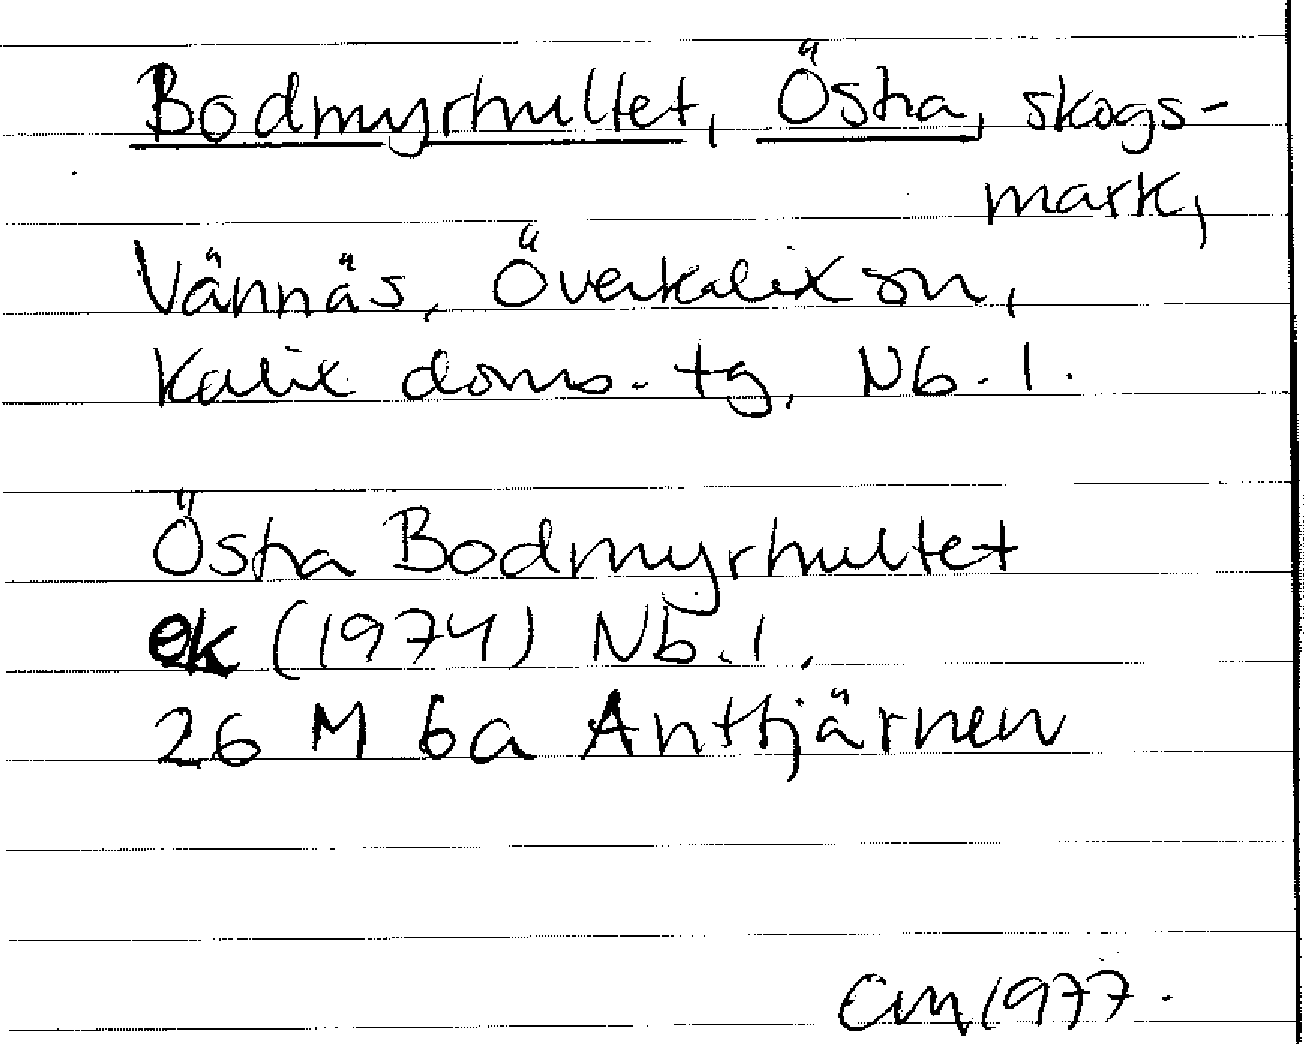 Bodmyrhultet, Östra, skogs-
mark,
Vännäs, Överkalix sn,
Kalix doms. tg, Nb. l.
Östra Bodmyrhultet
ek (1974) Nb. l.
26 M 6a Anttjärnen
EM 1977.